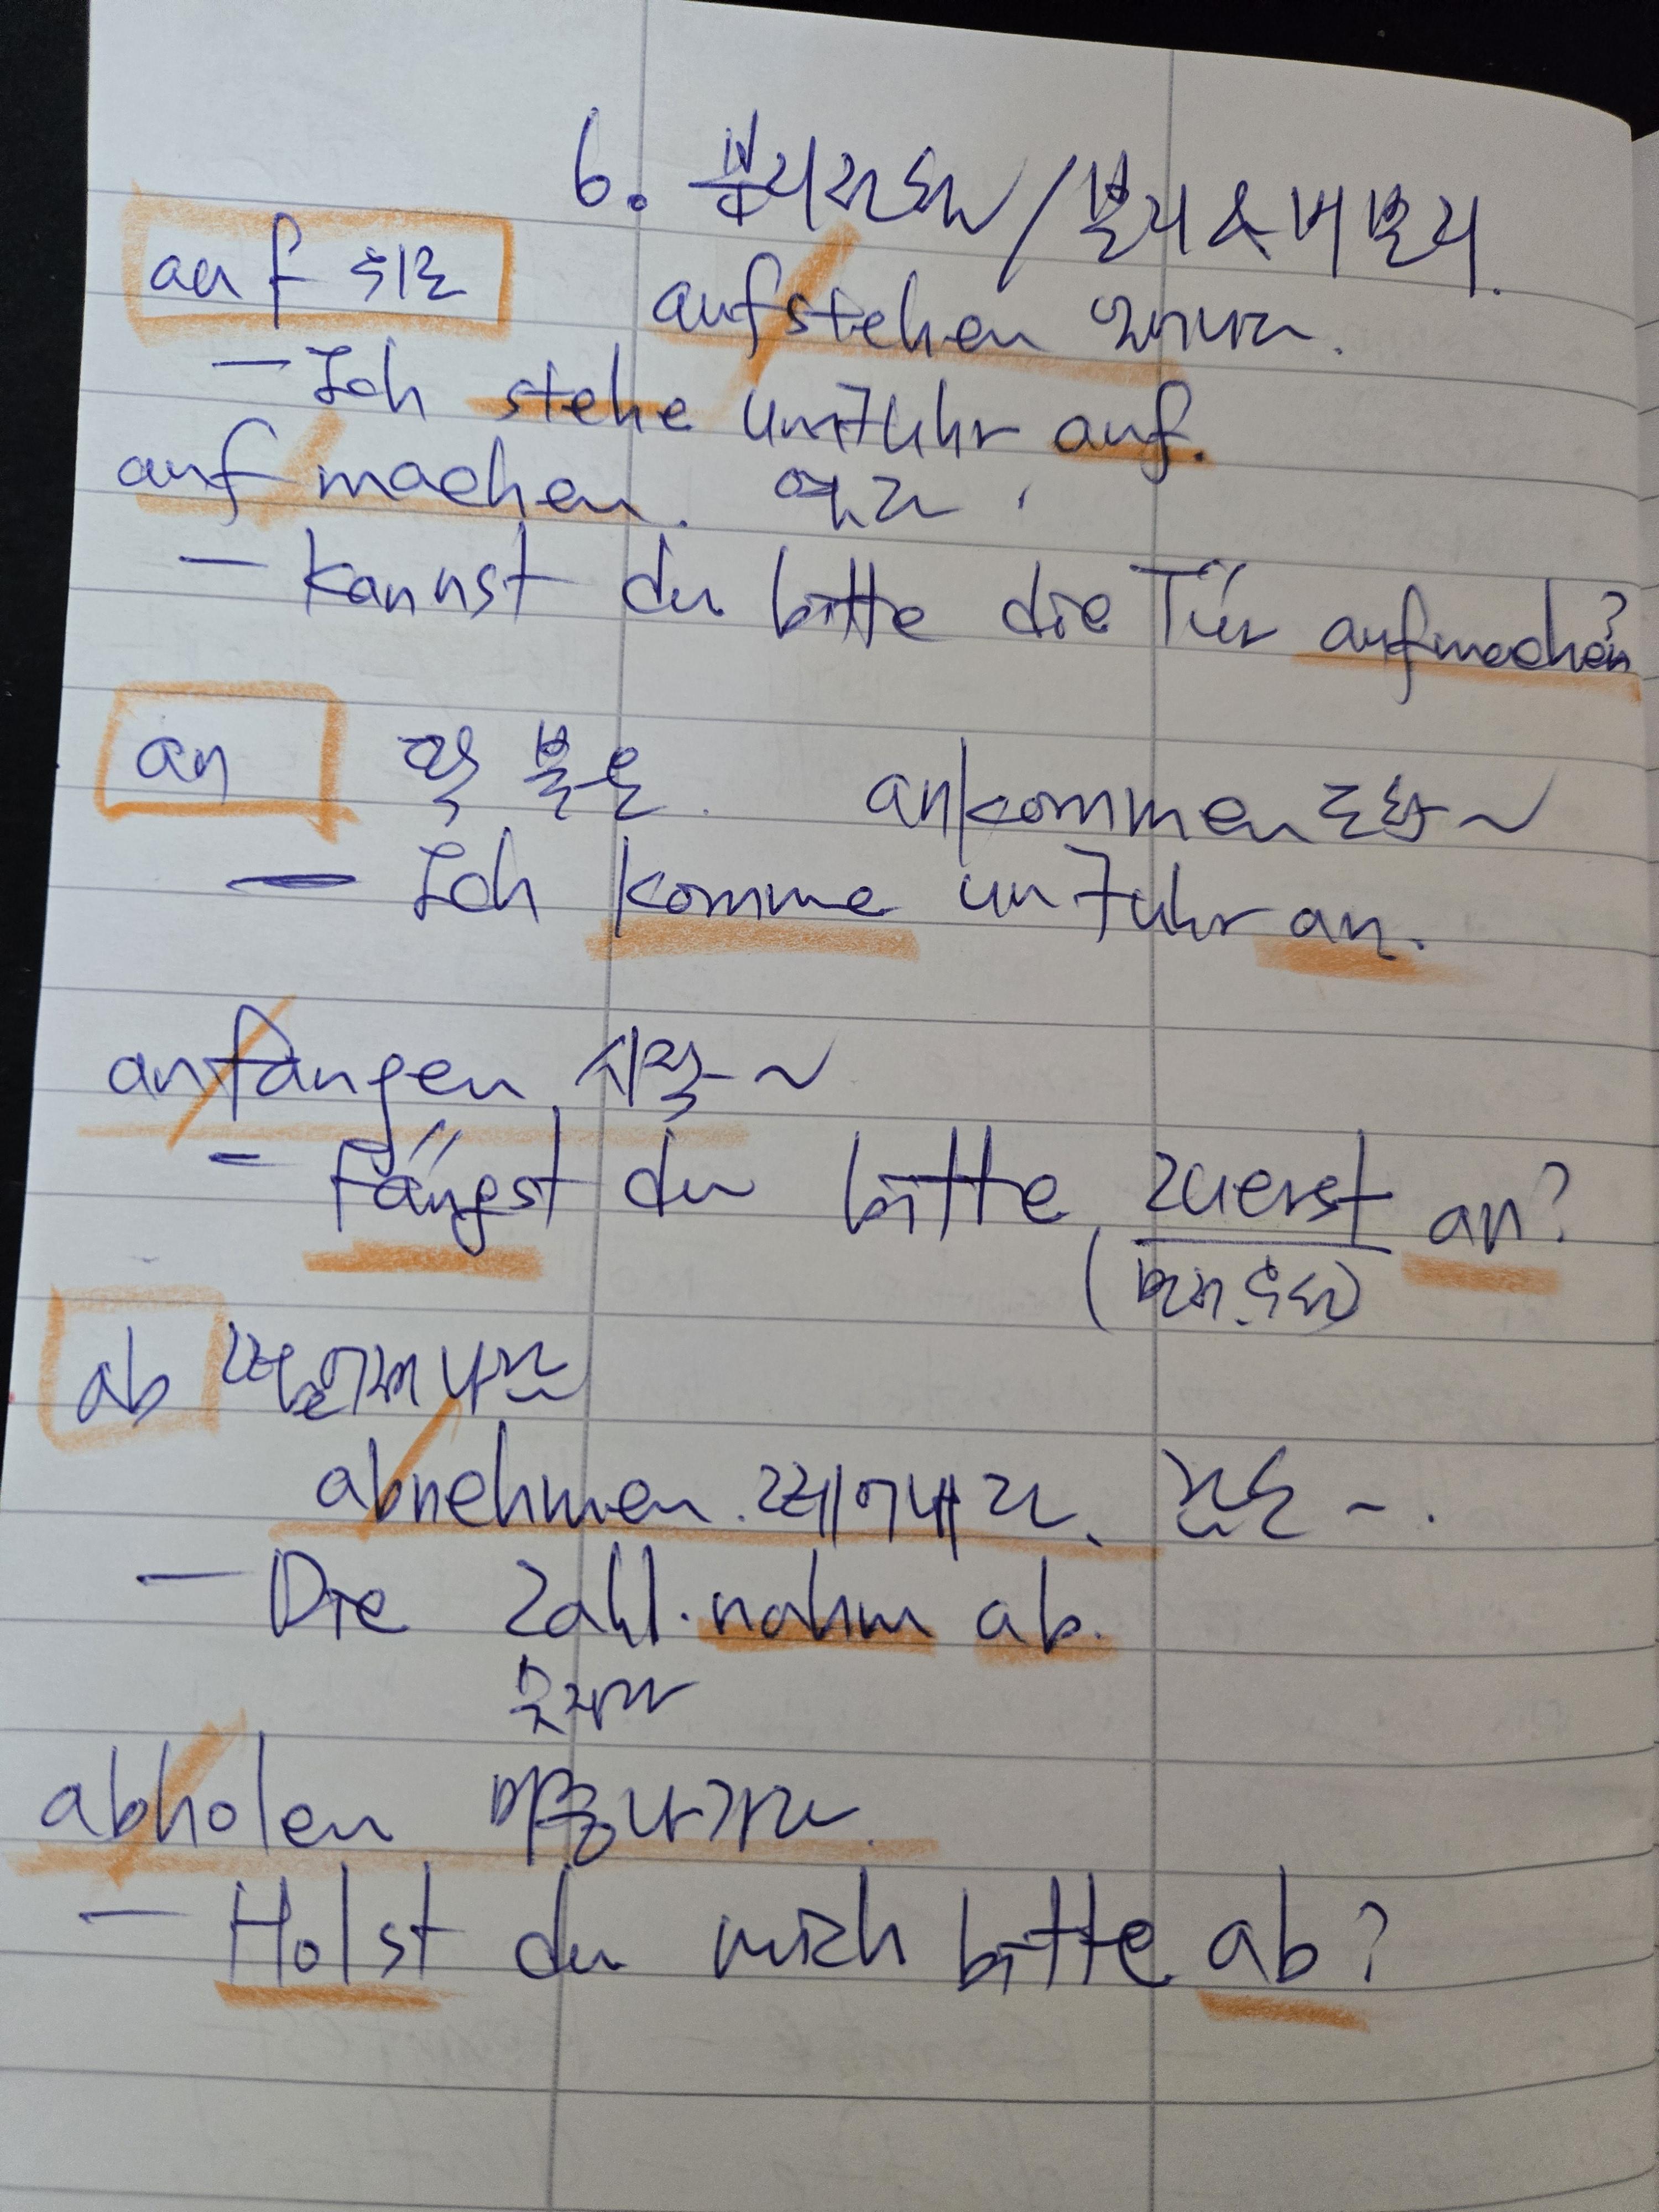 6. 분리전철/분리&비분리.
auf 위로 aufstehen 일어나다.
— Ich stehe um 7 Uhr auf.
auf machen. 열다.
— kannst du bitte die Tür aufmachen?
an 딱 붙은. ankommen 도착~
— Ich komme um 7 uhr an.
anfangen 시작~
- fängst du bitte zuerst an?
(먼저.우선)
ab 떨어져나간
abnehmen. 떼어내다. 감소~.
— Die Zahl. nahm ab.
숫자가
abholen 마중나가다.
— Holst du mich bitte ab?